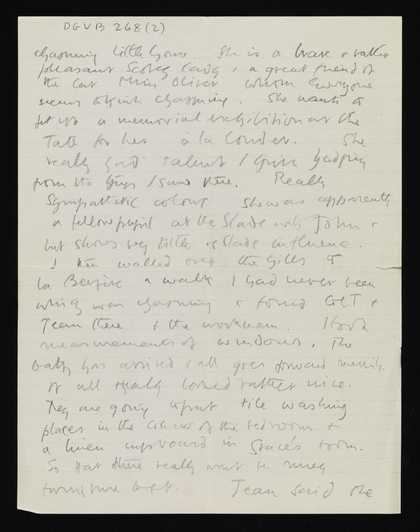 DGVB 268 (2)
charming little house She is a brave & rather
pleasant Scotch lady, a great friend of
the late Miss Oliver whom everyone
seems to think charming. She wants to
get up a memorial exhibition at the
Tate for her à la Conder. She
really had talent I think judging
from the things I saw there. Really
Sympathetic colour She was apparently
a fellow pupil at the Slade with John &
but shows very little of Slade influence.
I then walked over the hills to
La Bergère a walk I had never been
which was charming & found &
Jean there & the workmen. I took
measurements of windows. The
bath has arrived & all goes forward
It all looked rather nice.
They are going to put tile washing
places in the corner of the bedroom &
a linen cupboard in Grace's room.
So that there really won't be much
furniture to get. Jean said the